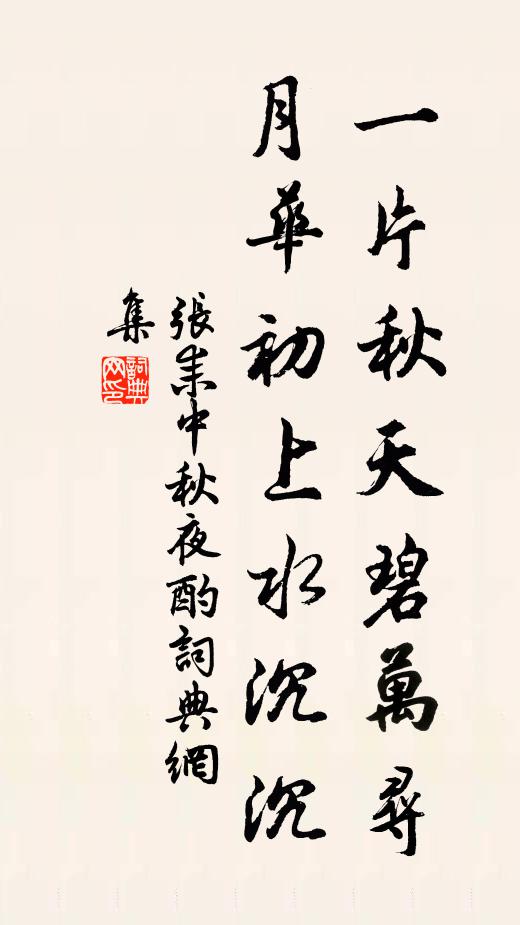 一片秋天碧萬尋
月華初上水沉沉
張耒中秋夜酌詞典網
集
詞典
网印